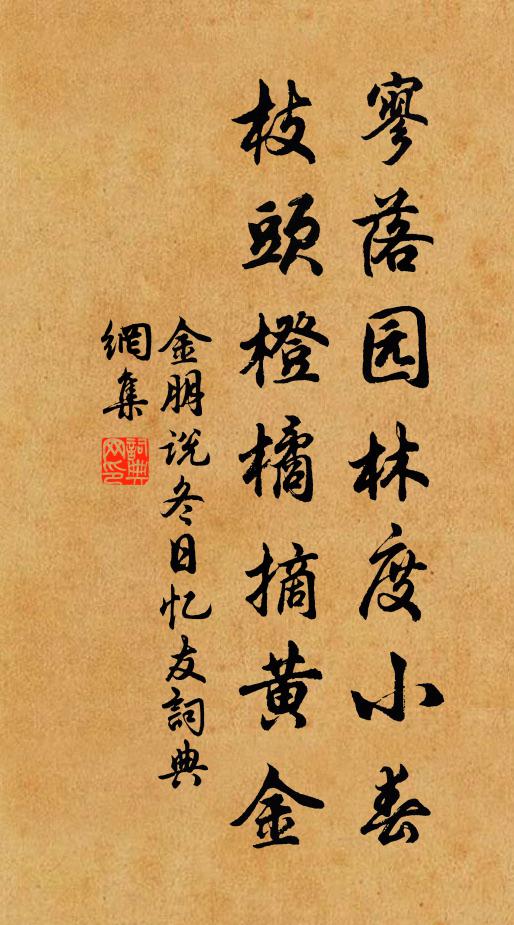 寥落园林度小春
枝頭橙橘摘黄金
金朋说冬日忆友詞典
網集
詞典网印